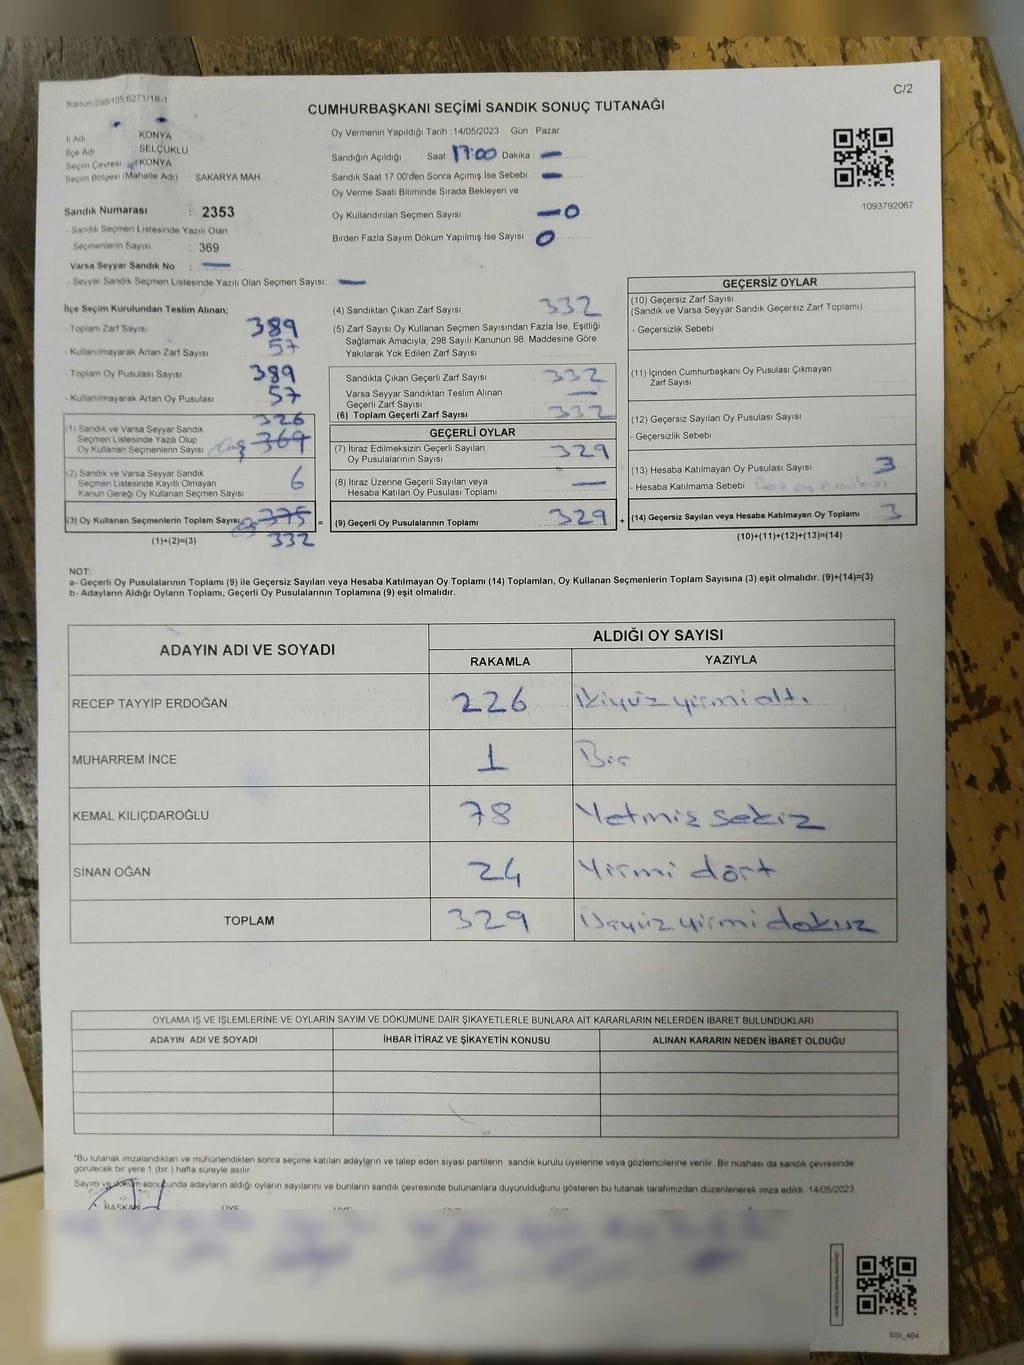 Kanun 298/105,6271/18-1
C/2
CUMHURBAŞKANI SEÇİMİ SANDIK SONUÇ TUTANAĞI
İl Adı KONYA
İlçe Adı SELÇUKLU
Seçim Çevresi KONYA
Seçim Bölgesi (Mahalle Adı) SAKARYA MAH.
Oy Vermenin Yapıldığı Tarih : 14/05/2023 Gün Pazar
Sandığın Açıldığı Saat 17:00 Dakika : —
Sandık Saat 17.00'den Sonra Açımış İse Sebebi : —
Oy Verme Saati Bitiminde Sırada Bekleyen ve
Oy Kullandırılan Seçmen Sayısı : — 0
Birden Fazla Sayım Döküm Yapılmış İse Sayısı : 0
1093792067
Sandık Numarası : 2353
- Sandık Seçmen Listesinde Yazılı Olan
Seçmenlerin Sayısı : 369
Varsa Seyyar Sandık No : —
- Seyyar Sandık Seçmen Listesinde Yazılı Olan Seçmen Sayısı: —
İlçe Seçim Kurulundan Teslim Alınan;
- Toplam Zarf Sayısı 389
- Kullanılmayarak Artan Zarf Sayısı 57
- Toplam Oy Pusulası Sayısı 389
- Kullanılmayarak Artan Oy Pusulası 57
326
(1) Sandık ve Varsa Seyyar Sandık
Seçmen Listesinde Yazılı Olup
Oy Kullanan Seçmenlerin Sayısı 369
(2) Sandık ve Varsa Seyyar Sandık
Seçmen Listesinde Kayıtlı Olmayan
Kanun Gereği Oy Kullanan Seçmen Sayısı 6
(3) Oy Kullanan Seçmenlerin Toplam Sayısı 375 =
(1)+(2)=(3) 332
(4) Sandıktan Çıkan Zarf Sayısı : 332
(5) Zarf Sayısı Oy Kullanan Seçmen Sayısından Fazla İse, Eşitliği
Sağlamak Amacıyla; 298 Sayılı Kanunun 98. Maddesine Göre
Yakılarak Yok Edilen Zarf Sayısı :
Sandıkta Çıkan Geçerli Zarf Sayısı : 332
Varsa Seyyar Sandıktan Teslim Alınan
Geçerli Zarf Sayısı : —
(6) Toplam Geçerli Zarf Sayısı : 332
GEÇERLİ OYLAR
(7) İtiraz Edilmeksizin Geçerli Sayılan
Oy Pusulalarının Sayısı : 329
(8) İtiraz Üzerine Geçerli Sayılan veya
Hesaba Katılan Oy Pusulası Toplamı : —
(9) Geçerli Oy Pusulalarının Toplamı : 329 +
GEÇERSİZ OYLAR
(10) Geçersiz Zarf Sayısı
(Sandık ve Varsa Seyyar Sandık Geçersiz Zarf Toplamı) :
- Geçersizlik Sebebi :
(11) İçinden Cumhurbaşkanı Oy Pusulası Çıkmayan
Zarf Sayısı :
(12) Geçersiz Sayılan Oy Pusulası Sayısı :
- Geçersizlik Sebebi :
(13) Hesaba Katılmayan Oy Pusulası Sayısı : 3
- Hesaba Katılmama Sebebi :
(14) Geçersiz Sayılan veya Hesaba Katılmayan Oy Toplamı : 3
(10)+(11)+(12)+(13)=(14)
NOT:
a- Geçerli Oy Pusulalarının Toplamı (9) ile Geçersiz Sayılan veya Hesaba Katılmayan Oy Toplamı (14) Toplamları, Oy Kullanan Seçmenlerin Toplam Sayısına (3) eşit olmalıdır. (9)+(14)=(3)
b- Adayların Aldığı Oyların Toplamı, Geçerli Oy Pusulalarının Toplamına (9) eşit olmalıdır.
ADAYIN ADI VE SOYADI ALDIĞI OY SAYISI
RAKAMLA YAZIYLA
RECEP TAYYİP ERDOĞAN 226 ikiyüz yirmi altı
MUHARREM İNCE 1 Bir
KEMAL KILIÇDAROĞLU 78 Yetmiş sekiz
SİNAN OĞAN 24 Yirmi dört
TOPLAM 329 Üçyüz yirmi dokuz
OYLAMA İŞ VE İŞLEMLERİNE VE OYLARIN SAYIM VE DÖKÜMÜNE DAİR ŞİKAYETLERLE BUNLARA AİT KARARLARIN NELERDEN İBARET BULUNDUKLARI
ADAYIN ADI VE SOYADI İHBAR İTİRAZ VE ŞİKAYETİN KONUSU ALINAN KARARIN NEDEN İBARET OLDUĞU
"Bu tutanak imzalandıktan ve mühürlendikten sonra seçime katılan adayların ve talep eden siyasi partilerin sandık kurulu üyelerine veya gözlemcilerine verilir. Bir nüshası da sandık çevresinde
görülecek bir yere 1 (bir ) hafta süreyle asılır.
Sayım ve döküm sonucunda adayların aldığı oyların sayılarını ve bunların sandık çevresinde bulunanlara duyurulduğunu gösteren bu tutanak tarafımızdan düzenlenerek imza edildi. 14/05/2023
BAŞKAN ÜYE
SSI_404